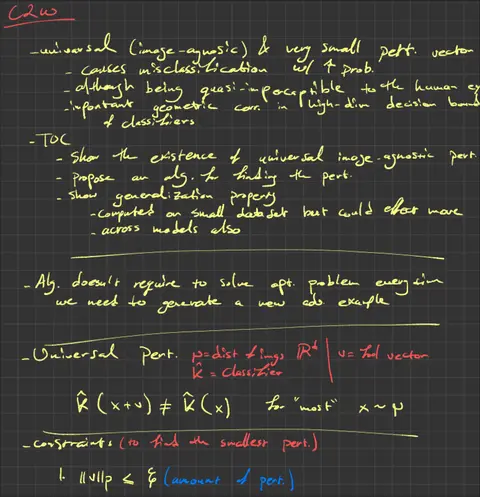 C2W
- universal (image-agnosic) & very small pert. vector
- causes misclassification w/ ↑ prob.
- although being quasi-imperceptible to the human ey
- important geometric corr. in high-dim decision bound
of classifiers
- TOC
- Show the existence of universal image-agnostic pert.
- propose an alg. for finding the pert.
- show generalization property
- computed on small dataset but could effect more
- across models also
- Alg. doesn't require to solve opt. problem everytime
we need to generate a new adv example
- Universal pert. μ = dist of imgs ℝᵈ | v = vector
k̂ = classifier
k̂(x+v) ≠ k̂(x) for "most" x ~ μ
- constraints (to find the smallest pert.)
1. ||v||p ≤ ξ (amount of pert.)